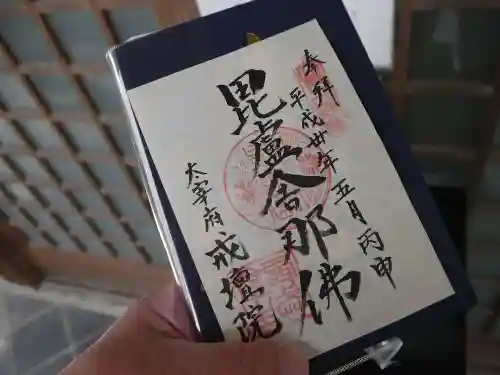 奉拜
平成廿年五月丙申
毘盧舎那佛
太宰府戒壇院